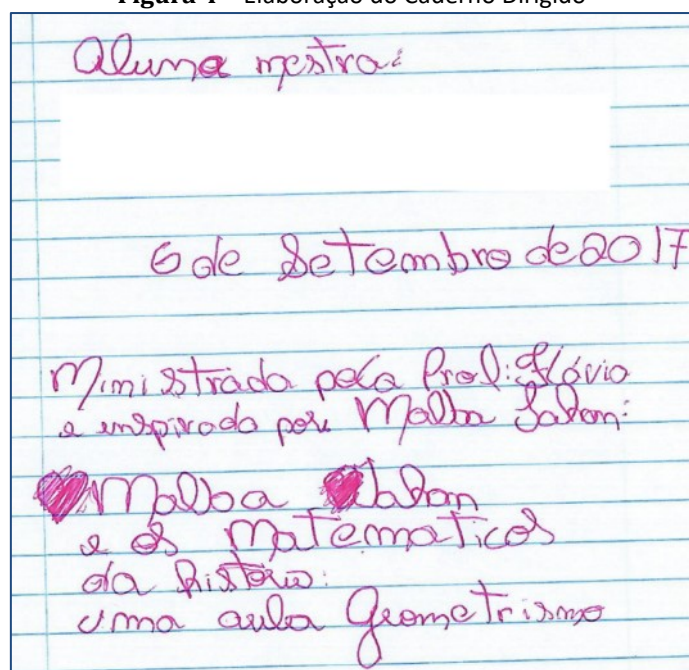 Figura 4 – Elaboração do Caderno Dirigido
Aluna mestra:
6 de Setembro de 2017
Ministrada pela Prof: Flávio
e inspirado por Malba Tahan:
Malba Tahan
e os matematicos
da história:
uma aula Geometrismo